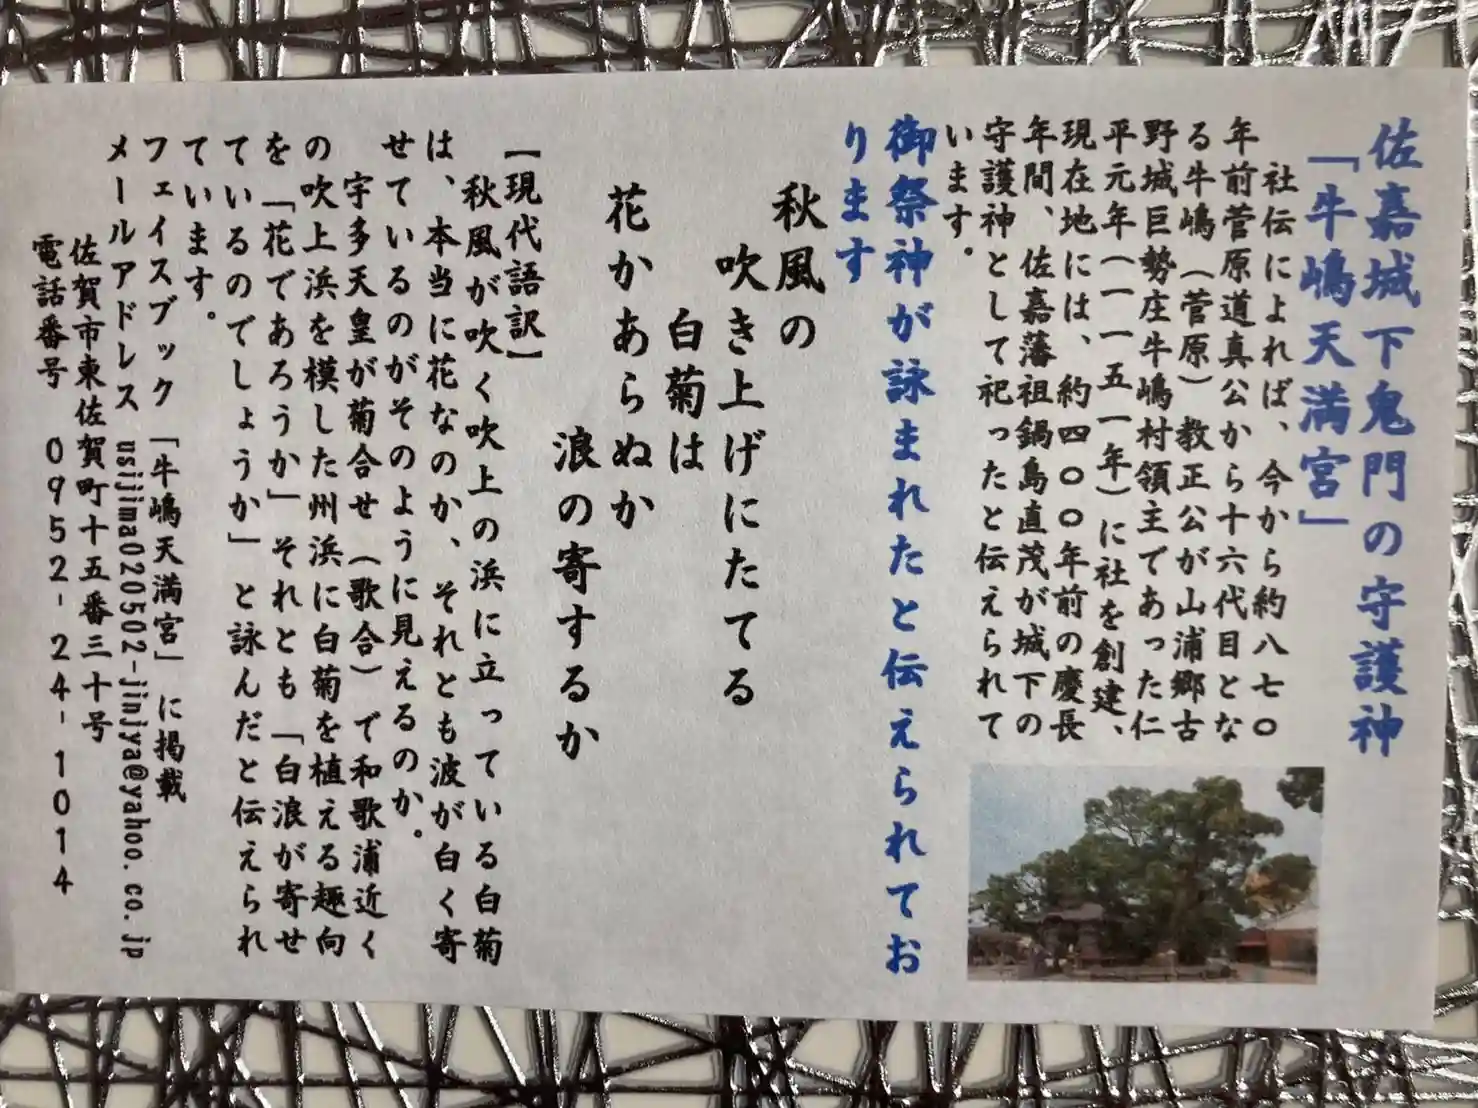 佐嘉城下鬼門の守護神
「牛嶋天満宮」
社伝によれば、今から約八七〇
年前菅原道真公から十六代目とな
る牛嶋（菅原）教正公が山浦郷古
野城巨勢庄牛嶋村領主であった仁
平元年（一一五一年）に社を創建、
現在地には、約四〇〇年前の慶長
年間、佐嘉藩祖鍋島直茂が城下の
守護神として祀ったと伝えられて
います。
御祭神が詠まれたと伝えられてお
ります
秋風の
吹き上げにたてる
白菊は
花かあらぬか
浪の寄するか
【現代語訳】
秋風が吹く吹上の浜に立っている白菊
は、本当に花なのか、それとも波が白く寄
せているのがそのように見えるのか。
宇多天皇が菊合せ（歌合）で和歌浦近く
の吹上浜を模した州浜に白菊を植える趣向
を「花であろうか」それとも「白浪が寄せ
ているのでしょうか」と詠んだと伝えられ
ています。
フェイスブック「牛嶋天満宮」に掲載
メールアドレス usijima020502-jinjya@yahoo.co.jp
佐賀市東佐賀町十五番三十号
電話番号 0952-24-1014